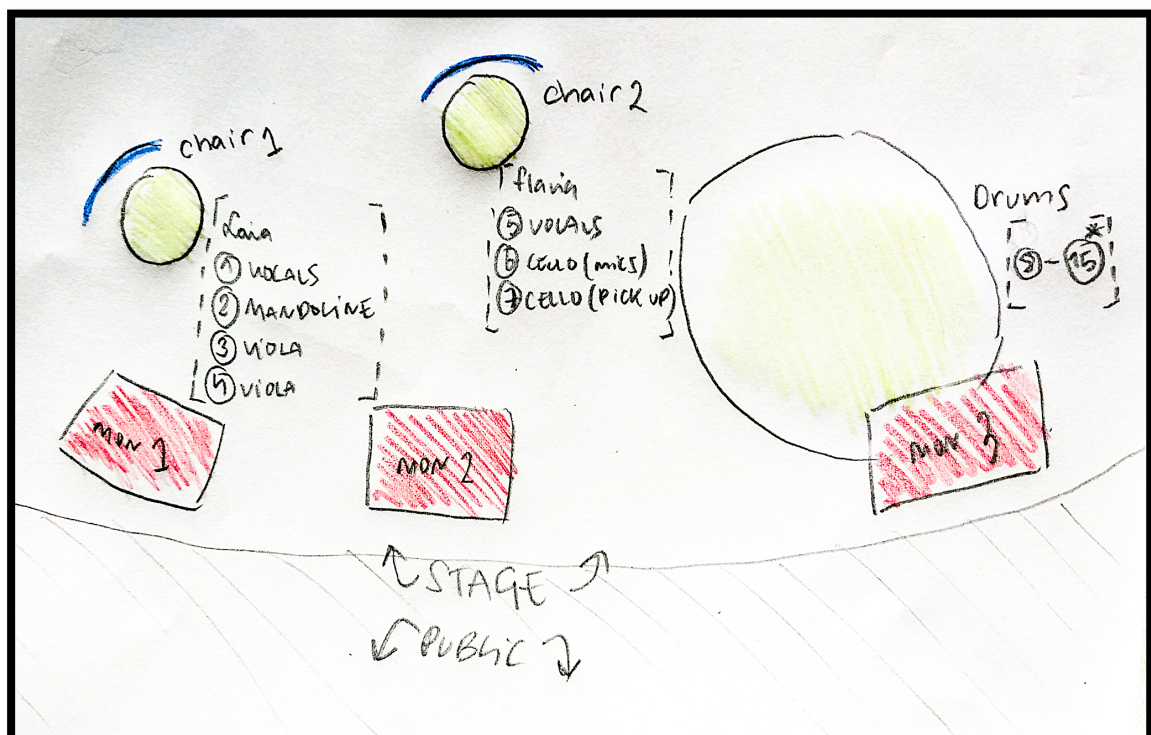 chair 1
chair 2
Laia
① VOCALS
② MANDOLINE
③ VIOLA
④ VIOLA
flavia
⑤ VOCALS
⑥ CELLO (mics)
⑦ CELLO (PICK UP)
Drums
⑧ - ⑮*
MON 1
MON 2
MON 3
STAGE
PUBLIC